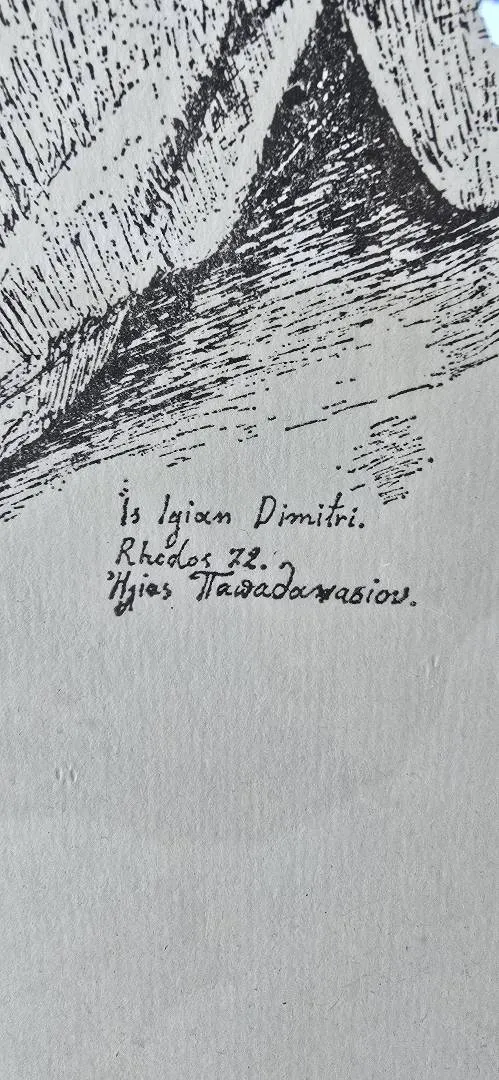 Ïs Igian Dimitri.
Rhodos 72.
Ἠλιας Παπαθανασιου.